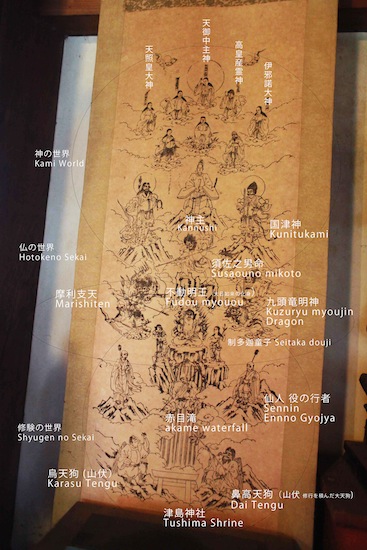 天御中主神
天照皇大神
高皇産霊神
伊邪諾大神
神の世界
Kami World
神主
Kannushi
国津神
Kunitukami
仏の世界
Hotokeno Sekai
須佐之男命
Susaouno mikoto
摩利支天
Marishiten
不動明王
Fudou myouou
九頭竜明神
Kuzuryu myoujin
Dragon
制多迦童子 Seitaka douji
仙人 役の行者
Sennin
Ennno Gyojya
赤目滝
akame waterfall
修験の世界
Shyugen no Sekai
烏天狗 (山伏)
Karasu Tengu
鼻高天狗 (山伏 修行を積んだ大天狗)
Dai Tengu
津島神社
Tushima Shrine